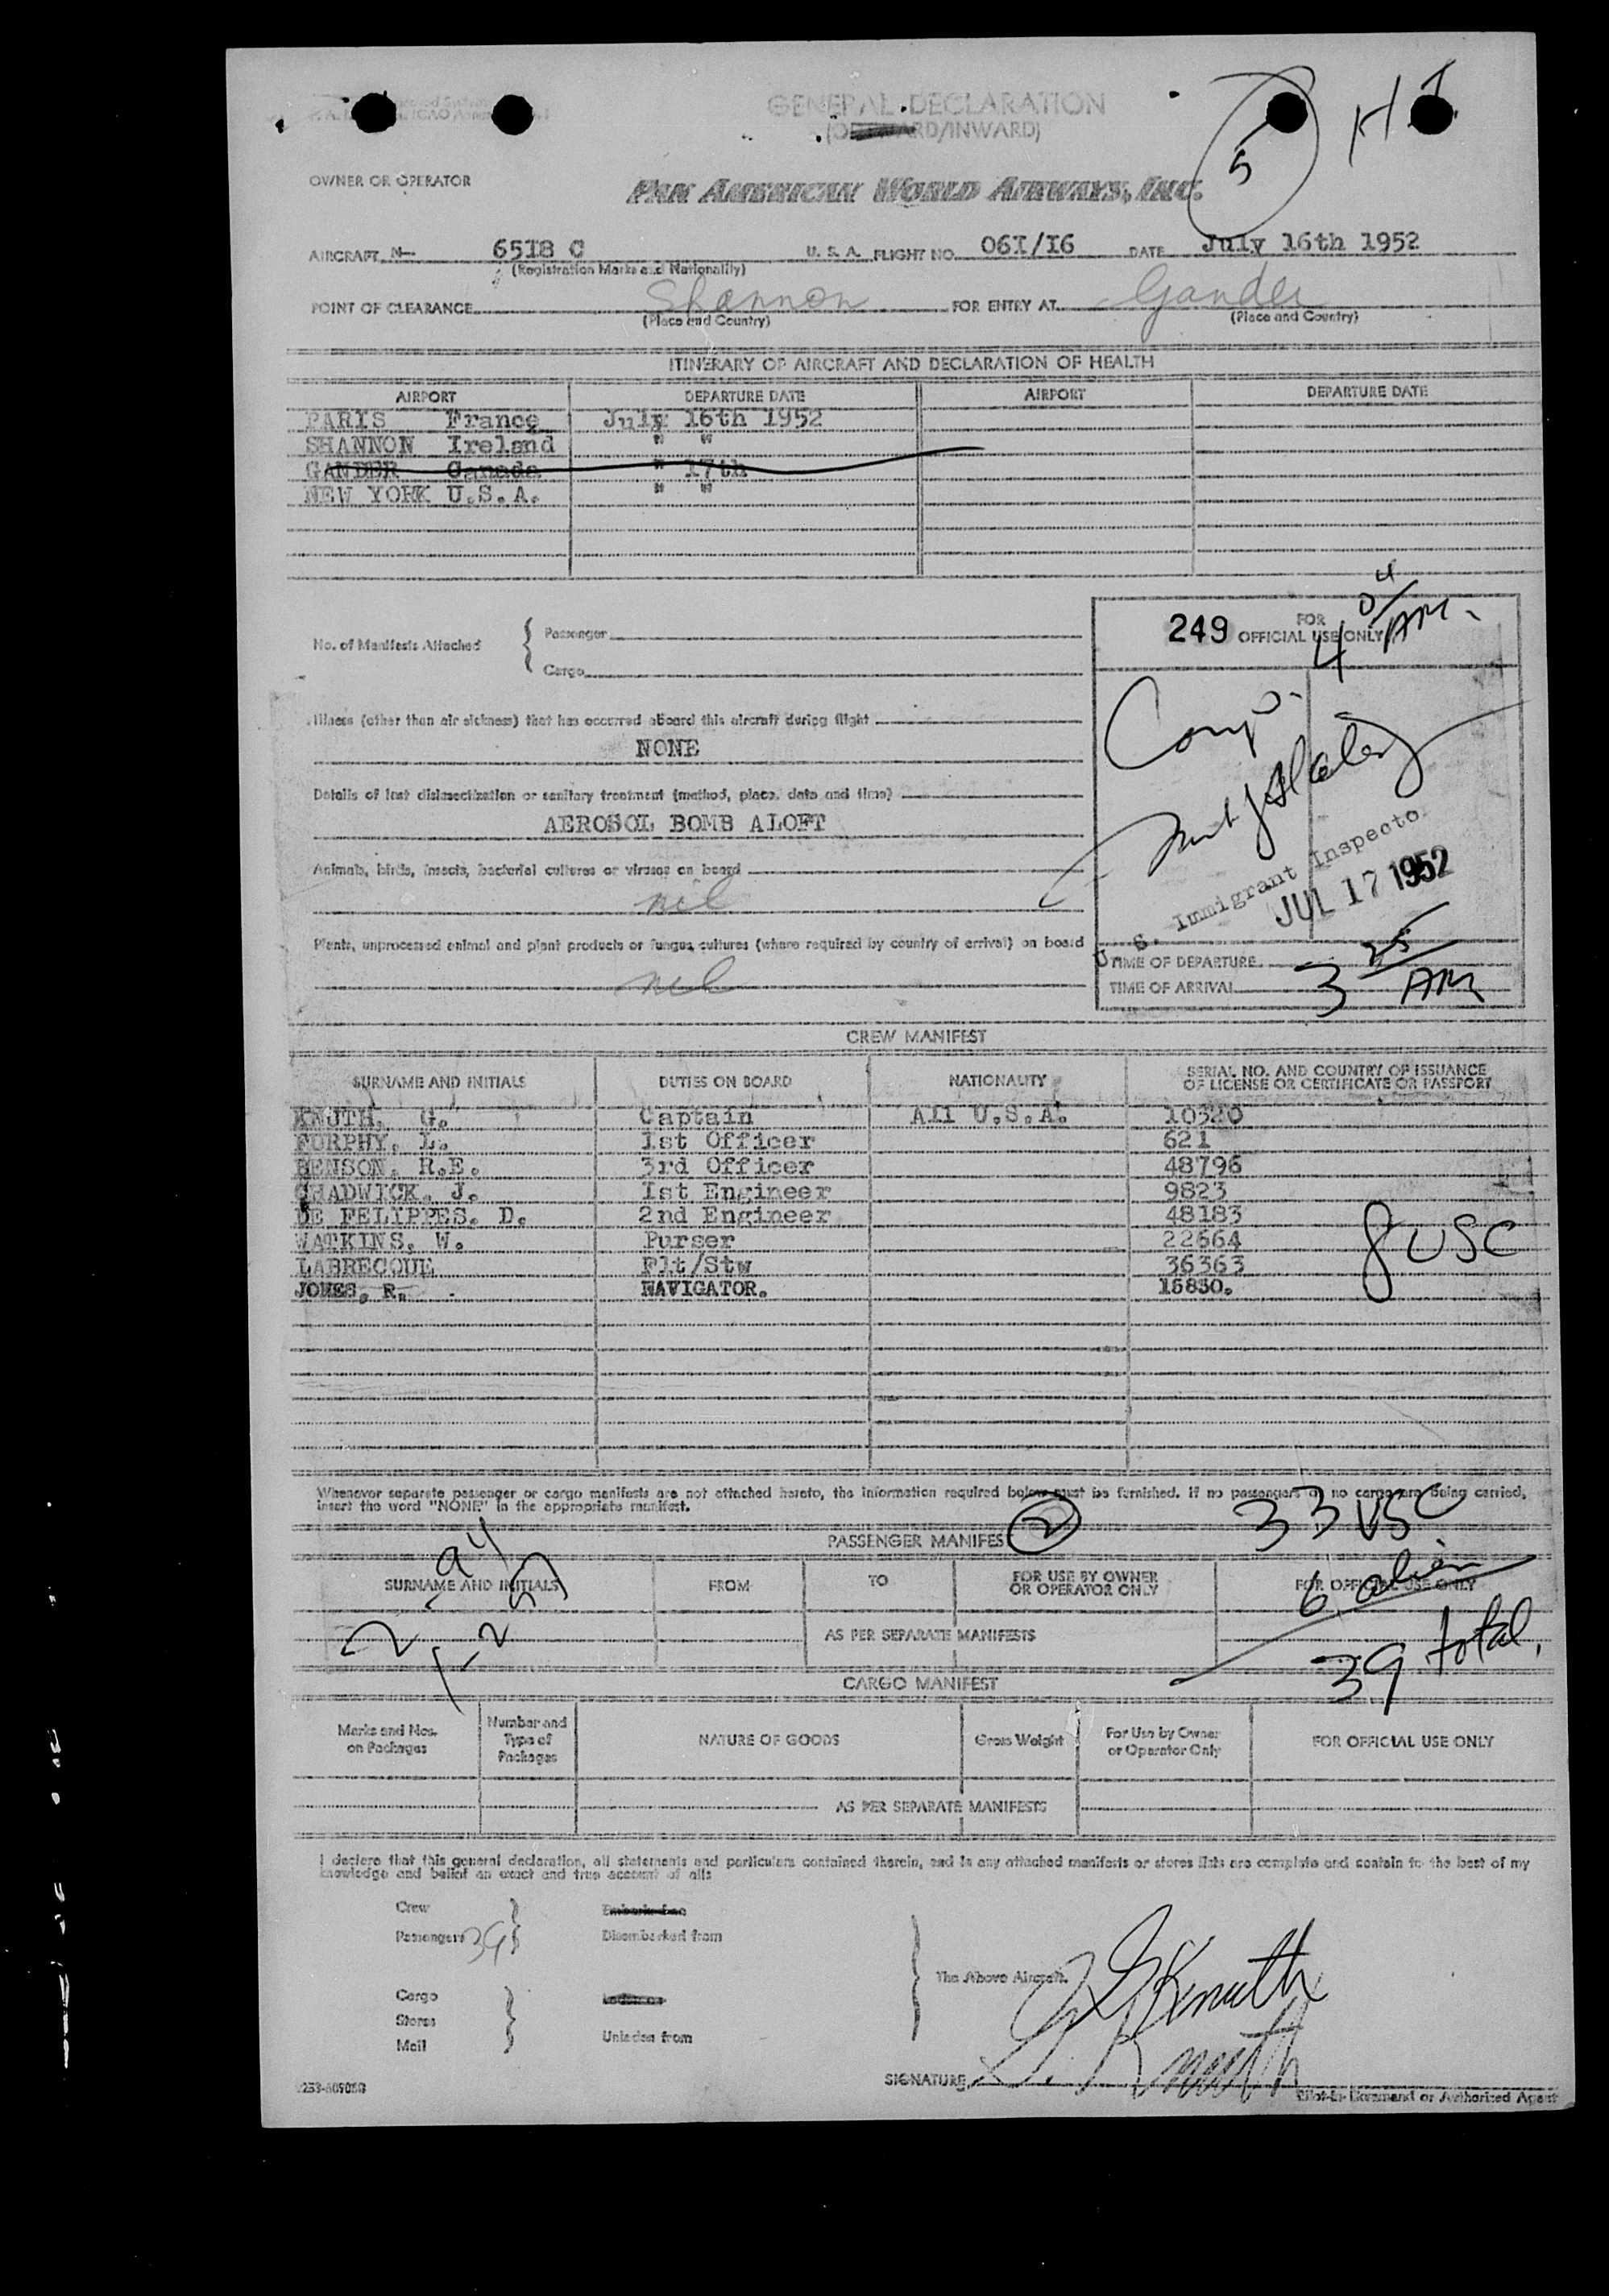 GENERAL DECLARATION
(OUTWARD/INWARD)
5
H
OWNER OR OPERATOR
PAN AMERICAN WORLD AIRWAYS, INC.
AIRCRAFT N— 6518 C U. S. A. FLIGHT NO. 06I/I6 DATE July 16th 1952
(Registration Marks and Nationality)
POINT OF CLEARANCE Shannon FOR ENTRY AT Gander
(Place and Country) (Place and Country)
ITINERARY OF AIRCRAFT AND DECLARATION OF HEALTH
AIRPORT DEPARTURE DATE AIRPORT DEPARTURE DATE
PARIS France July 16th 1952
SHANNON Ireland " "
GANDER Canada " 17th
NEW YORK U.S.A. " "
249 FOR OFFICIAL USE ONLY
4 04 AM
No. of Manifests Attached { Passenger
Cargo
Illness (other than air sickness) that has occurred aboard this aircraft during flight
NONE
Details of last disinsectization or sanitary treatment (method, place, date and time)
AEROSOL BOMB ALOFT
Animals, birds, insects, bacterial cultures or viruses on board
nil
Plants, unprocessed animal and plant products or fungus cultures (where required by country of arrival) on board
nil
U. S. Immigrant Inspector
JUL 17 1952
TIME OF DEPARTURE
TIME OF ARRIVAL 3 25 AM
CREW MANIFEST
SURNAME AND INITIALS DUTIES ON BOARD NATIONALITY SERIAL NO. AND COUNTRY OF ISSUANCE
OF LICENSE OR CERTIFICATE OR PASSPORT
KNUTH, G. Captain All U.S.A. 10320
FURPHY, L. 1st Officer 621
BENSON, R.E. 3rd Officer 48796
CHADWICK, J. 1st Engineer 9823
DE FELIPPES, D. 2nd Engineer 48183
WATKINS, W. Purser 22664
LABRECQUE Flt/Stw 36363
JONES, R. NAVIGATOR. 15830.
8 USC
Whenever separate passenger or cargo manifests are not attached hereto, the information required below must be furnished. If no passengers or no cargo are being carried,
insert the word "NONE" in the appropriate manifest.
33 USC
PASSENGER MANIFEST 2
SURNAME AND INITIALS FROM TO FOR USE BY OWNER
OR OPERATOR ONLY FOR OFFICIAL USE ONLY
6 alien
AS PER SEPARATE MANIFESTS
39 total,
CARGO MANIFEST
Marks and Nos.
on Packages Number and
Type of
Packages NATURE OF GOODS Gross Weight For Use by Owner
or Operator Only FOR OFFICIAL USE ONLY
AS PER SEPARATE MANIFESTS
I declare that this general declaration, all statements and particulars contained therein, and in any attached manifests or stores lists are complete and contain to the best of my
knowledge and belief an exact and true account of all:
Crew Embarked on
Passengers 39 Disembarked from
The Above Aircraft.
G. Knuth
Cargo
Stores
Mail Unladen from
SIGNATURE G. Knuth
Pilot-in-Command or Authorized Agent